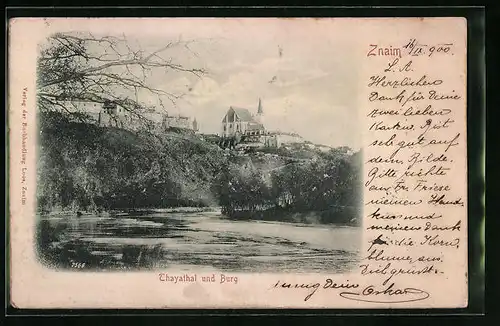 Znaim 16/IX. 900.
L. A.
Herzlichen
Dank für Deine
zwei lieben
Karten. Bist
sehr gut auf
dem Bilde.
Bitte richte
an Fr. Friese
meinen Hand-
kuss und
meinen Dank
für die Korn-
blume aus.
Viel grüsst
innig Dein
Oskar
Verlag der Buchhandlung Loos, Znaim
7566
Thayathal und Burg